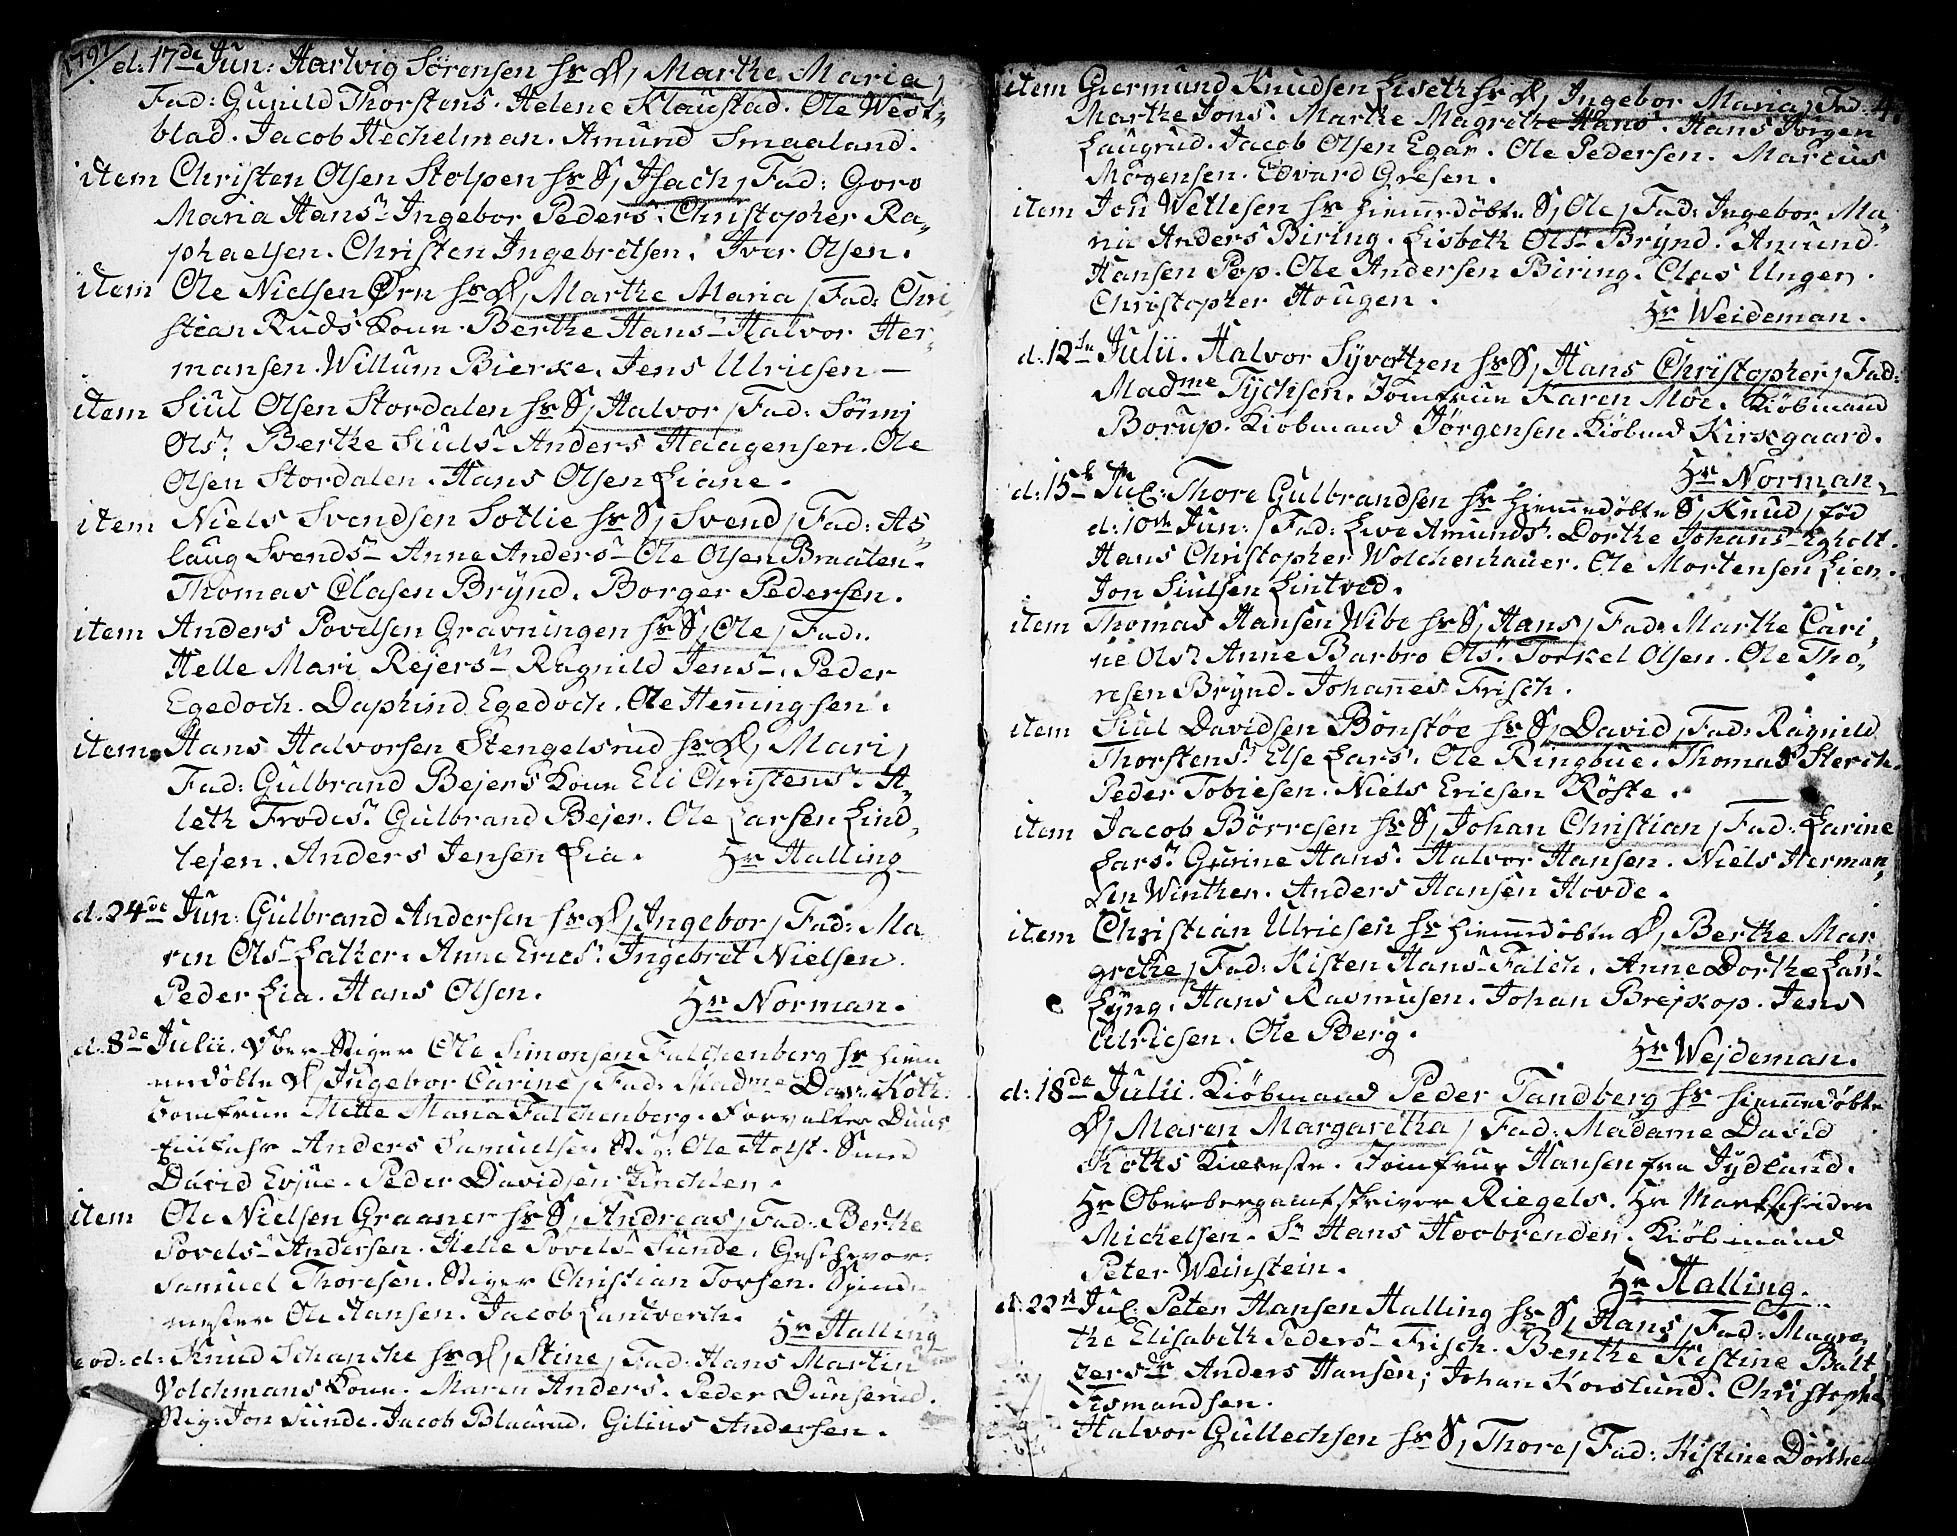 1797
d. 17de Jun: Hartvig Sörensen hr D, Marthe Maria,
Fad: Gunild Thorstens. Helene Klaustad. Ole West-
blad. Jacob Hechelman. Amund Smaaland.
item Christen Olsen Stolpen hr S, Isach, Fad: Goro
Maria Hans. Ingebor Peders. Christopher Ra-
phaelsen. Christen Ingebretsen. Iver Olsen.
item Ole Nielsen Ørn hr D, Marthe Maria, Fad: Chri
stian Ruds Kone. Berthe Hans. Halvor Her-
mansen. Willum Bierke. Jens Ulricsen –
item Siul Olsen Stordalen hr S, Halvor, Fad: Sönnj
Ols. Berthe Siuls. Anders Haagensen. Ole
Olsen Stordalen. Hans Olsen Liane.
item Niels Svendsen Sotlie hr S, Svend, Fad: As-
laug Svends. Anne Anders. Ole Olsen Braaten.
Thomas Clasen Brÿnd. Borger Pedersen.
item Anders Povelsen Gravningen hr S, Ole, Fad:
Helle Mari Rejers. Ragnild Jens. Peder
Egedoch. Daphind Egedoch. Ole Henningsen.
item Hans Halvorsen Stengelsrud hr D, Mari,
Fad: Gulbrand Bejers Kone Eli Christens. A-
leth Frodes. Gulbrand Bejer. Ole Larsen Lind-
lejen. Anders Jensen Lia. Hr Halling
d. 24de Jun: Gulbrand Andersen hr D, Ingebor, Fad: Ma-
ren Ols Lather. Anne Erics. Ingebret Nielsen.
Peder Lia. Hans Olsen. Hr Norman.
d. 8de Julii. Ober Stiger Ole Simonsen Falchenberg hr hiem
medöbte D, Ingebor Carine, Fad: Madme Dav: Koth.
Jomfrue Mette Maria Falchenberg. Forvalter Duus
Anders Samuelsen Stig: Ole Holst. Smed
David Evjue. Peder Davidsen
item Ole Nielsen Graaner hr S, Andreas, Fad: Berthe
Povels. Andersen. Helle Povels Sunde. Geschevor.
Samuel Thoresen. Stiger Christian Torsen. Spend-
mester Ole Hansen. Jacob Landverch. Hr Halling
eod: d: Knud Schanche hr D, Stine, Fad: Hans Martin
Volchmans Kone. Maren Anders. Peder Dunserud.
Stig: Jon Sunde. Jacob Blaarud. Gilius Andersen.
item Giermund Knudsen Liseth hr D, Ingebor Maria, Fad:
Marthe Jons. Marthe Magrethe Hans. Hans Jörgen
Laugrud. Jacob Olsen Egar. Ole Pedersen. Marcus
Mogensen. Edvard Gresen.
item Jon Wetlesen hr hiemmedöbte S, Ole, Fad: Ingebor Ma
rie Anders Biring. Lisbeth Ols Brÿnd. Amund
Hansen Pop. Ole Andersen Biring. Clas Unger.
Christopher Hougen. Hr Weideman.
d. 12te Julii. Halvor Syvertzen hr S, Hans Christopher, Fad:
Madme Tychsen. Jomfrue Karen Moe. Kiöbmand
Borup. Kiöbmand Jørgensen. Kiöbmd Kirkgaard.
Hr Norman.
d. 15de Jul: Thore Gulbrandsen hr hiemmedöbte S, Knud, föd
d: 10de Jun: / Fad: Live Amunds. Dorthe Johans Egholt.
Hans Christopher Wolchenhauer. Ole Mortensen Lien.
Jon Siulsen Lintved.
item Thomas Hansen Wibe hr S, Hans, Fad: Marthe Cari-
ne Ols Anne Barbro Ols. Torkel Olsen. Ole Tho-
resen Brÿnd. Johannes Frisch.
item Siul Davidsen Bönstöe hr S, David, Fad: Ragnild
Thorstens. Else Lars. Ole Ringbue. Thomas Sterch.
Peder Tobiesen. Niels Ericsen Röste.
item Jacob Börresen hr S, Johan Christian, Fad: Larine
Lars. Gurine Hans. Halvor Hansen. Niels Herman-
sen Winther. Anders Hansen Hovde.
item Christian Ulricsen hr hiemmedöbte D, Berthe Mar
grethe, Fad: Kisten Hans. Falch. Anne Dorthe Lau-
Lyng. Hans Rasmusen. Johan Brejskop. Jens
Ulricsen. Ole Berg. Hr Wejdeman.
d. 18de Julii. Kiöbmand Peder Tandberg hr hiemmedöbte
D, Maren Margaretha, Fad: Madame David
Koths Kiæreste. Jomfrue Hansen fra Jydland.
Hr Oberbergamtskriver Riegels. Hr Markscheider
Michelsen. Sr Hans Hoobrenden. Kiöbmand
Peter Weinstein. Hr Halling.
d. 22de Jul: Peter Hansen Halling hr S, Hans, Fad: Magre-
the Elisabeth Peders. Frisch. Benthe Kistine Balt
zersdr Anders Hansen; Johan Korslund. Christophe
Tismandsen.
Halvor Gullechsen hr S, Thore, Fad: Kistine Dorthea